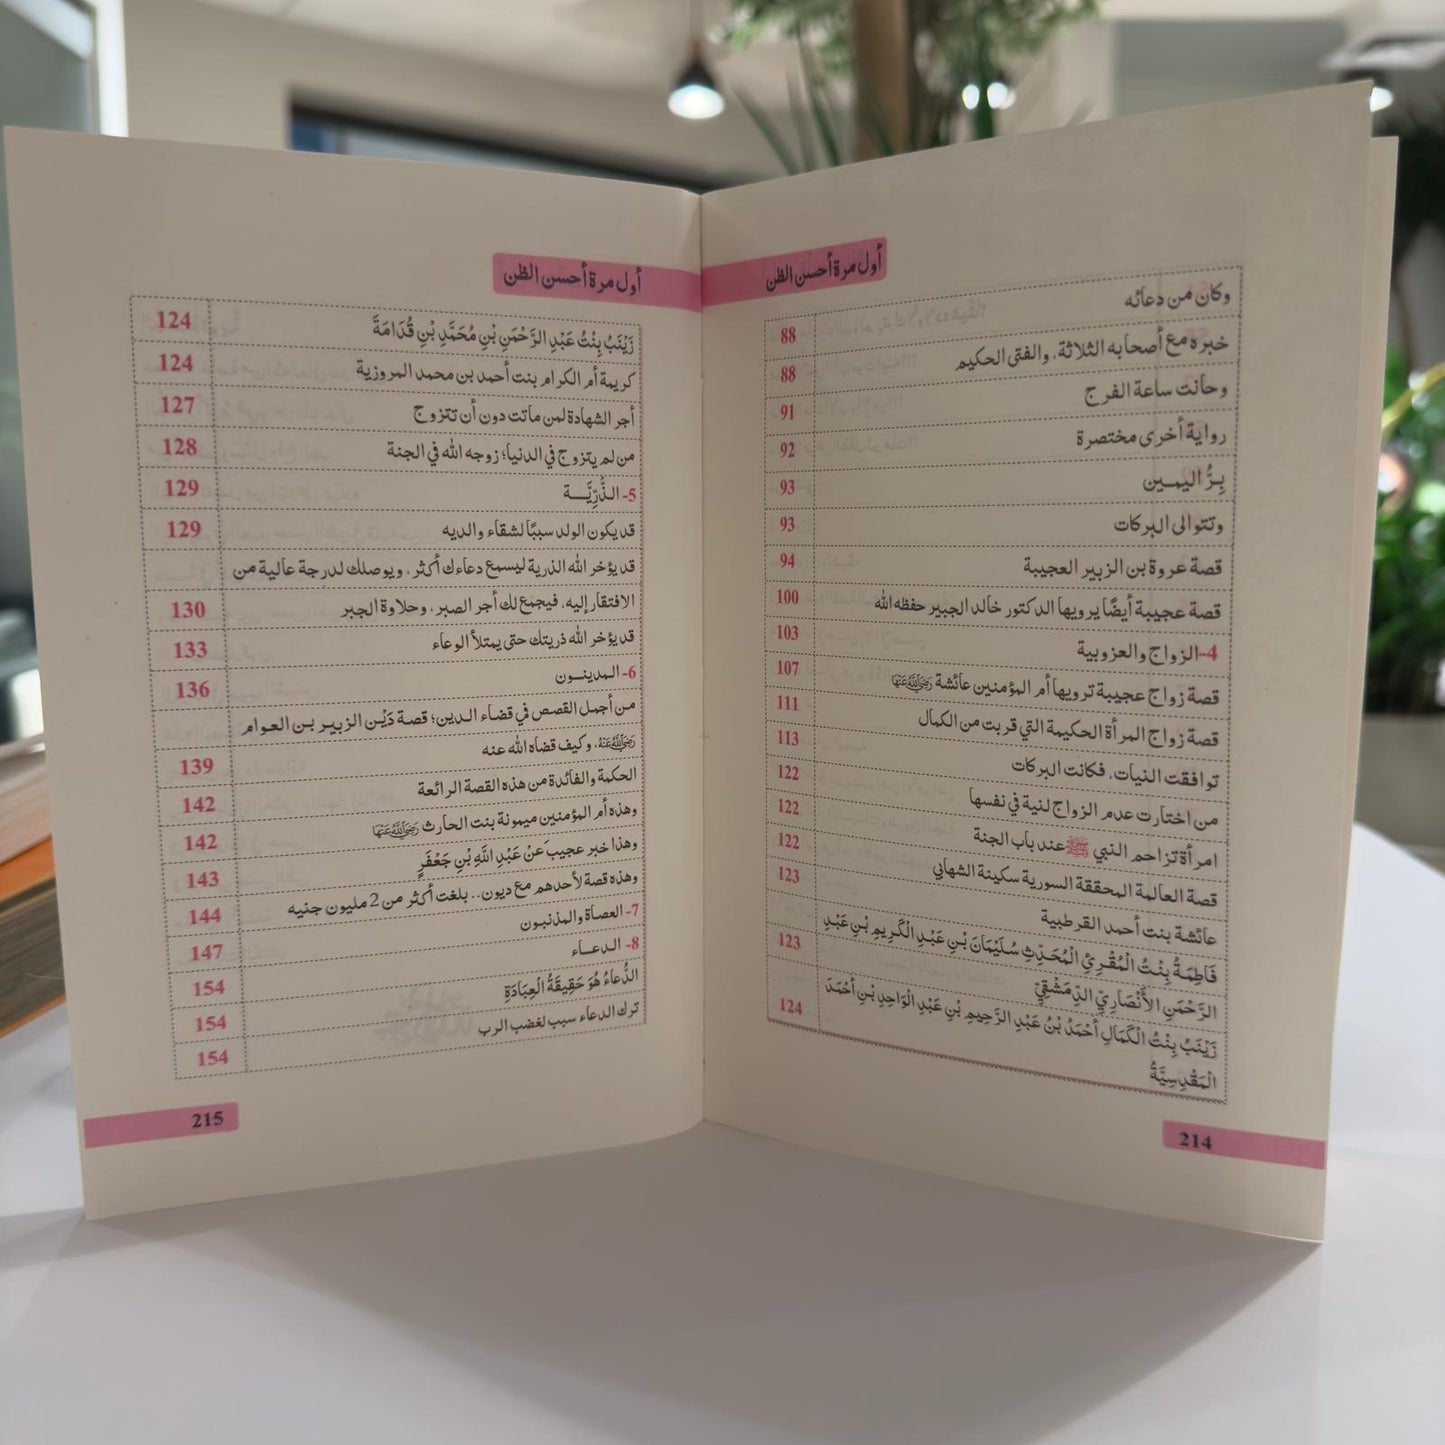 أول مرة أحسن الظن
وكان من دعائه 88
خبره مع أصحابه الثلاثة، والفتى الحكيم 88
وحانت ساعة الفرج 91
رواية أخرى مختصرة 92
بِرُّ اليمـين 93
وتتوالى البركات 93
قصة عروة بن الزبير العجيبة 94
قصة عجيبة أيضًا يرويها الدكتور خالد الجبير حفظه الله 100
4-الزواج والعزوبية 103
قصة زواج عجيبة ترويها أم المؤمنين عائشة رَضِيَ اللَّهُ عَنْهَا 107
قصة زواج المرأة الحكيمة التي قربت من الكمال 111
توافقت النيات، فكانت البركات 113
من اختارت عدم الزواج لنية في نفسها 122
امرأة تزاحم النبي ﷺ عند باب الجنة 122
قصة العالمة المحققة السورية سكينة الشهابي 122
عائشة بنت أحمد القرطبية 123
فَاطِمَةُ بِنْتُ الْمُقْرِئِ الْمُحَدِّثِ سُلَيْمَانَ بْنِ عَبْدِ الْكَرِيمِ بْنِ عَبْدِ
الرَّحْمَنِ الأَنْصَارِيِّ الدِّمَشْقِيِّ 123
زَيْنَبُ بِنْتُ الْكَمَالِ أَحْمَدُ بْنُ عَبْدِ الرَّحِيمِ بْنِ عَبْدِ الْوَاحِدِ بْنِ أَحْمَدَ
الْمَقْدِسِيَّةُ 124
214
أول مرة أحسن الظن
زَيْنَبُ بِنْتُ عَبْدِ الرَّحْمَنِ بْنِ مُحَمَّدِ بْنِ قُدَامَةَ 124
كريمة أم الكرام بنت أحمد بن محمد المروزية 124
أجر الشهادة لمن ماتت دون أن تتزوج 127
من لم يتزوج في الدنيا؛ زوجه الله في الجنة 128
5- الـذُّرِيَّـــة 129
قد يكون الولد سببًا لشقاء والديه 129
قد يؤخر الله الذرية ليسمع دعاءك أكثر، ويوصلك لدرجة عالية من
الافتقار إليه، فيجمع لك أجر الصبر، وحلاوة الجبر 130
قد يؤخر الله ذريتك حتى يمتلأ الوعاء 133
6- الـمدينــون 136
من أجمل القصص في قضاء الدين؛ قصة دَيْن الزبير بن العوام
رَضِيَ اللَّهُ عَنْهُ، وكيف قضاه الله عنه 139
الحكمة والفائدة من هذه القصة الرائعة 142
وهذه أم المؤمنين ميمونة بنت الحارث رَضِيَ اللَّهُ عَنْهَا 142
وهذا خبر عجيب عَنْ عَبْدِ اللَّهِ بْنِ جَعْفَرٍ 143
وهذه قصة لأحدهم مع ديون.. بلغت أكثر من 2 مليون جنيه 144
7- العصاة والمذنبون 147
8- الـدعــاء 154
الدُّعاءُ هُوَ حَقِيقَةُ الْعِبَادَةِ 154
ترك الدعاء سبب لغضب الرب 154
215